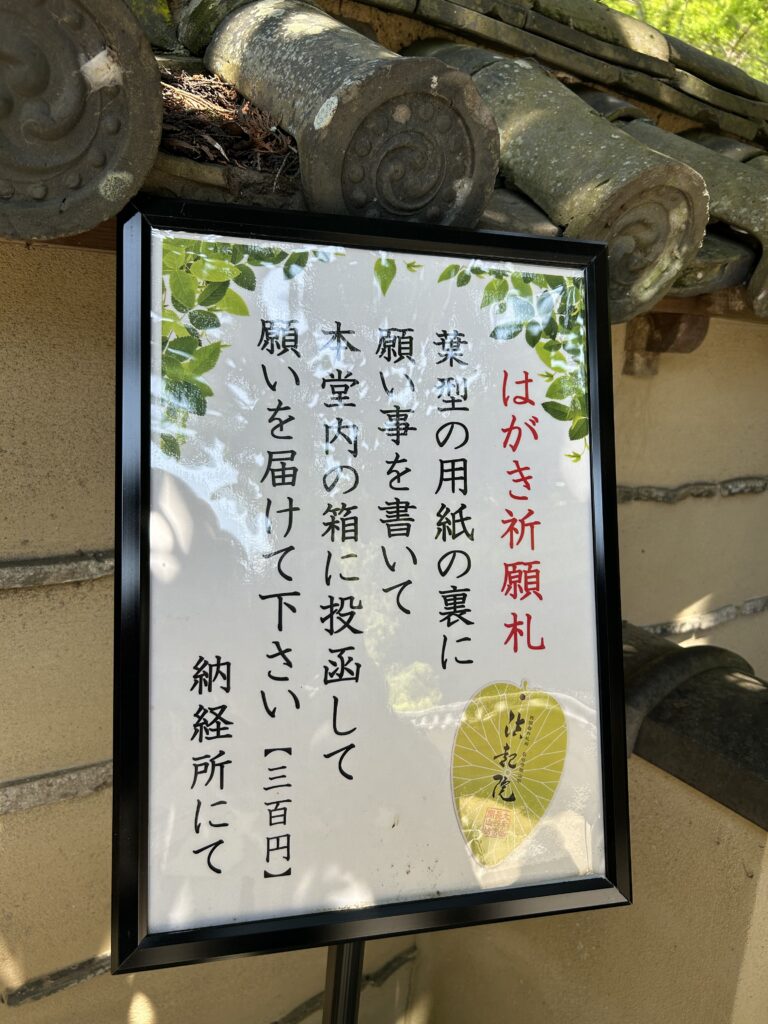 はがき祈願札
葉型の用紙の裏に
願い事を書いて
本堂内の箱に投函して
願いを届けて下さい【三百円】
納経所にて
法起院